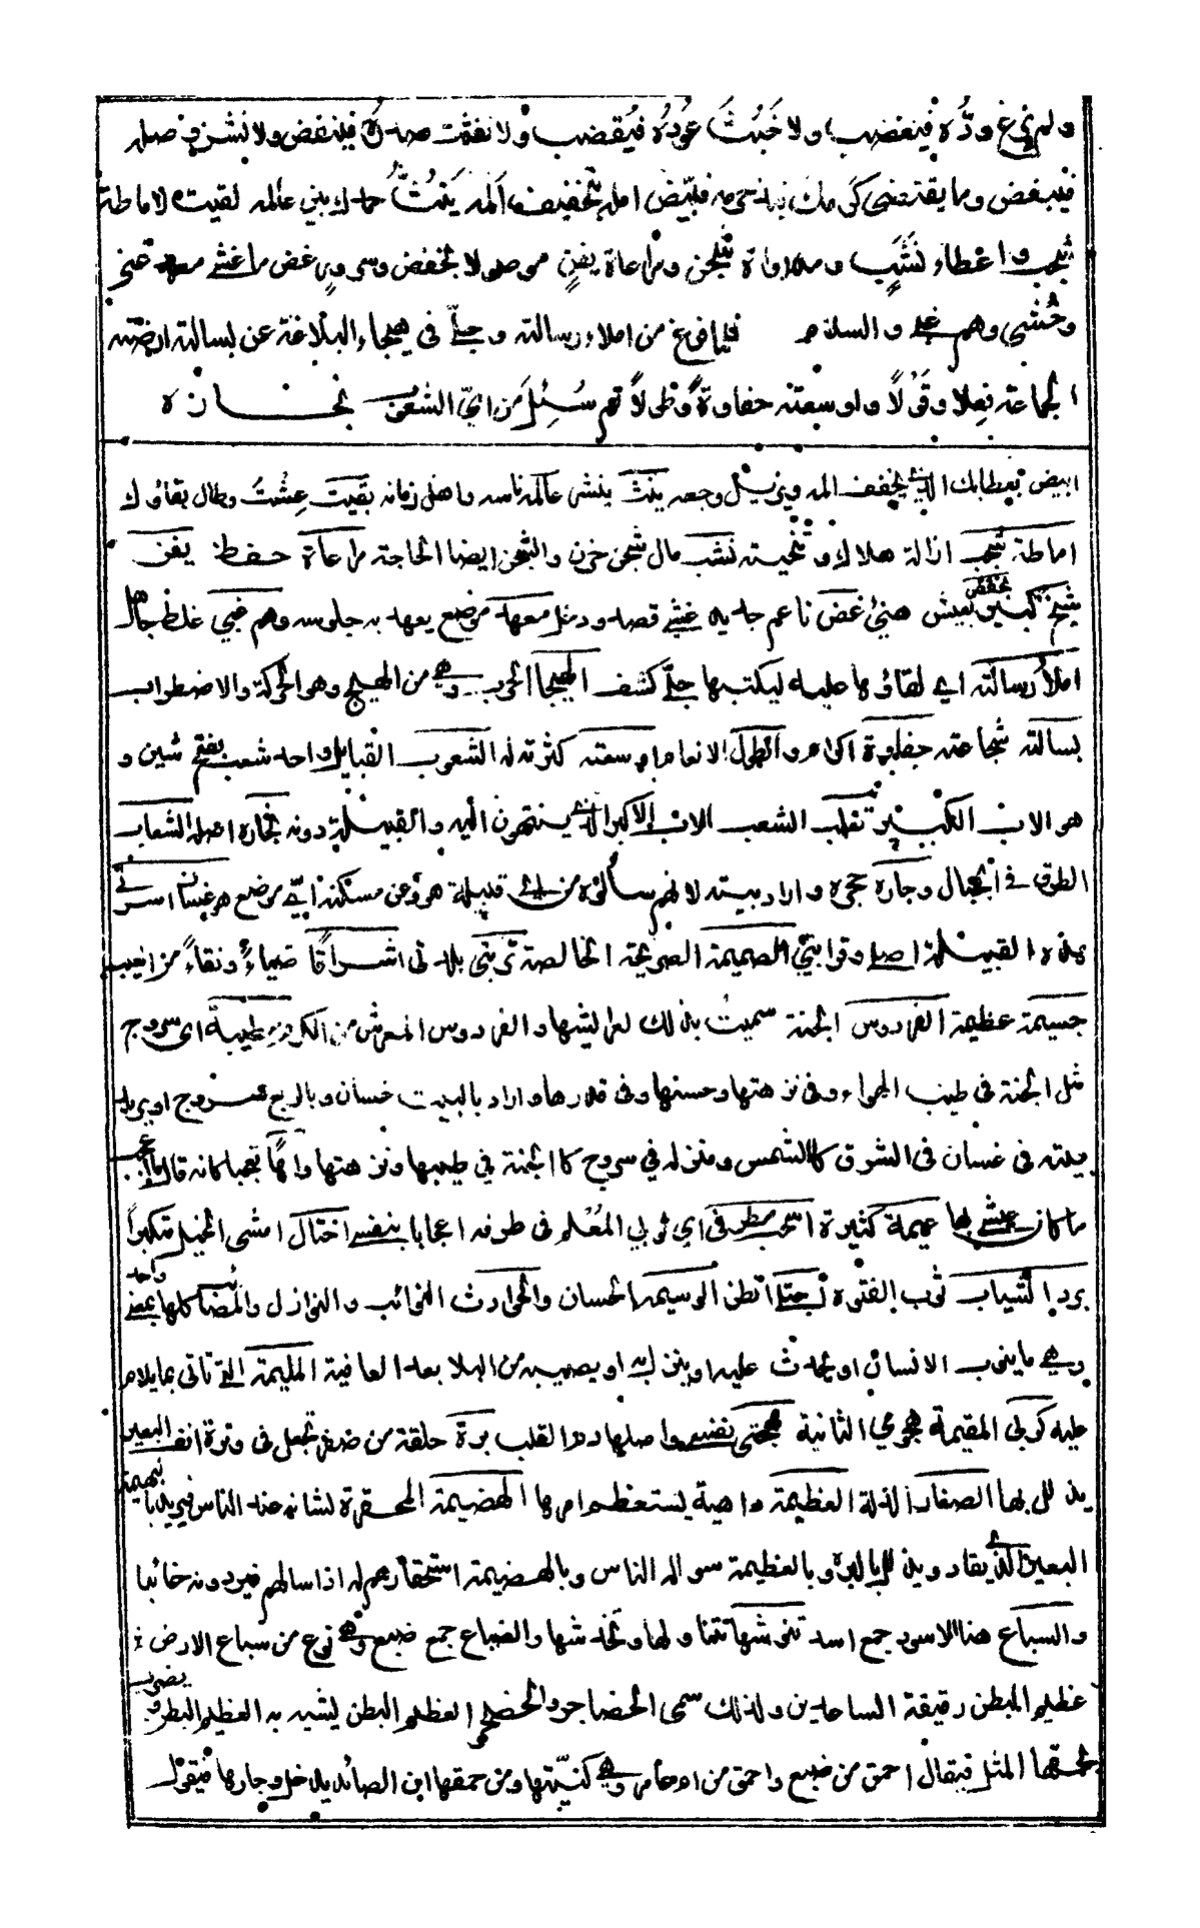 ولم يزغ وده فيغضب ولا خَبُثَ عُودُه فيُقضب ولا نفث صدره فينفض ولا نشز وصله
فيبغض وما يقتضي كرمك نبذ حرمه فبيّض امله بتخفيف المه يَنُثُّ حمدك بين عالمه بقيت لاماطة
شجب واعطاء نَشَبٍ ومداواة شجن ومراعاة يفن موصولا بخفض وسرور غض ما غشي معهد غني
وخُشي وهم غبي والسلام فلما فرغ من املاء رسالته وجلّى في هيجاء البلاغة عن بسالته ارضته
الجماعة فعلا وقَوْلًا واوسعته حفاوة وطَولًا ثم سُئِلَ من ايّ الشعوب نجاره
ابيض بعطائك الذي يخفف المه ويزيل وجعه ينث ينشى عالمه ناسه واهل زمانه بقيت عِشْتَ وطال بقاؤك
اماطة شجب ازالة هلاك وتنحيته نشب مال شجن حزن والشجن ايضا الحاجة مراعاة حفظ يفن
شيخ كبير بخفض بعيش هنئ غض ناعم جديد غشي قصد ودخل معهد موضع يعهد به جلوسه وهم غبي غلط جاهل
املأ رسالته اي لقاؤها عليه ليكتبها جلّى كشف الهيجا الحرب وهي من الهيج وهو الحركة والاضطراب
بسالته شجاعته حفاوة اكرام والطول الانعام اوسعته كثرته له الشعوب القبايل واحد شعب بفتح شين و
هو الاب الكبير تغلب الشعب الاب الاكبر الذي ينتهون اليه والقبيلة دونه نجاره اصله الشعاب
الطرق في الجبال وجاره حجره واراد بيته لانهم سألوه من اي قبيلة هو وعن مسكنه اي موضع هو غسان اسرتي
هذه القبيلة اصلي وقرابتي الصميمة الصريحة الخالصة تربتي بلدتي اشراقًا ضياءً ونقاءً من العيب
جسيمة عظيمة الفردوس الجنة سميت بذلك لعرايشها والفردوس المعرش من الكروم مطيبة اي سروج
مثل الجنة في طيب الهواء وفي نزهتها وحسنها وفي قدرها واراد بالبيت غسان وبالربع سروج او يريد
بيته في غسان في الشرق كالشمس ومنزله في سروج كالجنة في طيبها ونزهتها واهًا تعجبا كانه قال ما اعجب
ما كان عيشي بها عميمة كثيرة اسحب مطرفي اي ثوبي المُعْلم في طرفه اعجابا بنفسي اختال امشي الخيل متكبرًا
برد الشباب ثوب الفتوة اجتلي انظر الوسيمة الحسان والحوادث النوائب والنوازل والمصائب كلها بمعنى واحد
وهي ما ينوب الانسان او يحدث عليه او ينزل به او يصيبه من البلا بعد العافية المليمة التي تاتي بما يلام
عليه كربي المقيمة همومي الثانية مهجتي نفسي واصلها دم القلب برة حلقة من صفر تجعل في وترة انف البعير
يذلل بها الصغار الذلة العظيمة داهية يستعظم امرها الهضيمة المحقرة لشانه عند الناس فيريد بالبهيمة
البعير الذي يقاد ويذلل بالبرة وبالعظيمة سواله الناس وبالهضيمة استحقارهم له اذا سالهم فيردونه خائبا
والسباع هنا الاسود جمع اسد تنوشها تتناولها وتخدشها والضباع جمع ضبع وهي نوع من سباع الارض
عظيم البطن رقيقة الساعدين ولذلك سمى الحضاجر والحضجر العظيم البطن ليشبه به العظيم البطن ويضرب
بحمقها المثل فيقال احمق من ضبع واحمق من ام عامر وهي كنيتها ومن حمقها ان الصائد يدخل وجارها فيقول